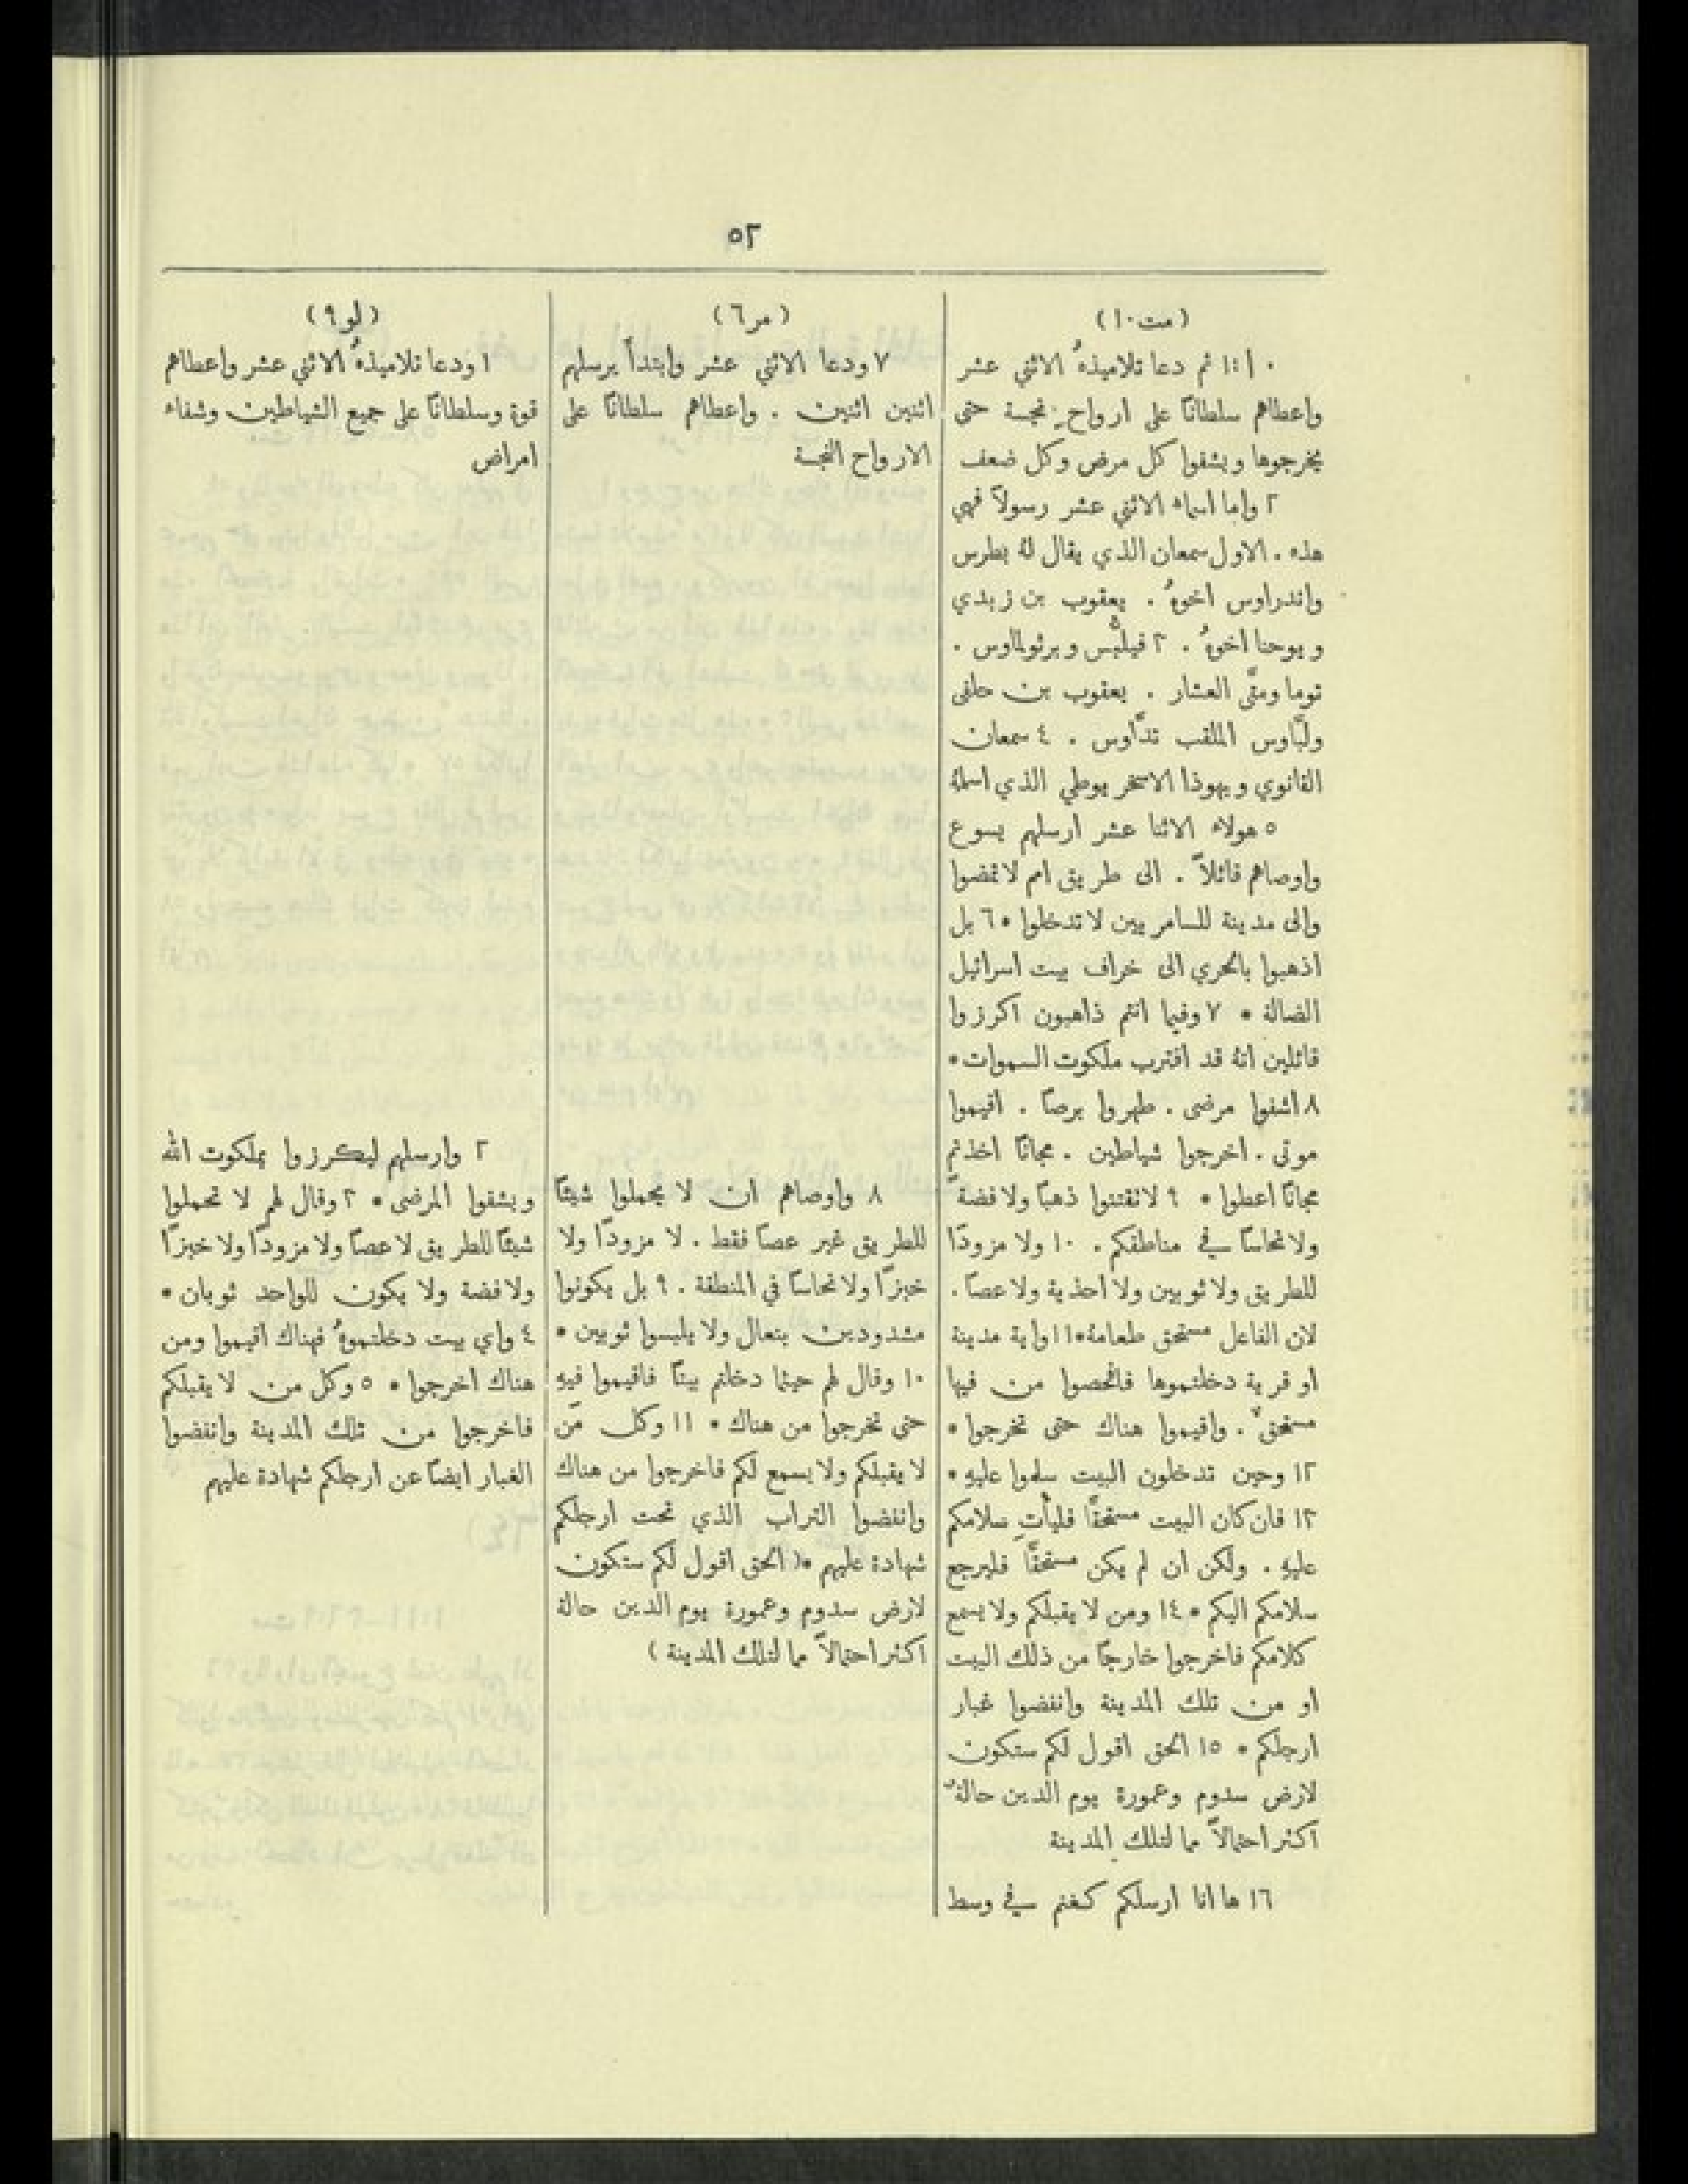 ٥٢
(مت ١٠)
١٠:١ ثم دعا تلاميذهُ الاثني عشر
واعطاهم سلطانًا على ارواح نجسة حتى
يخرجوها ويشفوا كل مرض وكل ضعف
٢ واما اسماء الاثني عشر رسولاً فهي
هذه . الاول سمعان الذي يقال لهُ بطرس
واندراوس اخوهُ . يعقوب بن زبدي
ويوحنا اخوهُ . ٣ فيلبُّس وبرثولماوس .
توما ومتَّى العشار . يعقوب بن حلفى
ولبَّاوس الملقب تدَّاوس . ٤ سمعان
القانوي ويهوذا الاسخريوطي الذي اسلمهُ
٥ هولاء الاثنا عشر ارسلهم يسوع
واوصاهم قائلاً . الى طريق امم لا تمضوا
والى مدينة للسامريين لا تدخلوا * ٦ بل
اذهبوا بالحري الى خراف بيت اسرائيل
الضالة * ٧ وفيما انتم ذاهبون اكرزوا
قائلين انهُ قد اقترب ملكوت السموات *
٨ اشفوا مرضى . طهروا برصًا . اقيموا
موتى . اخرجوا شياطين . مجانًا اخذتم
مجانًا اعطوا * ٩ لا تقتنوا ذهبًا ولا فضةً
ولا نحاسًا في مناطقكم . ١٠ ولا مزودًا
للطريق ولا ثوبين ولا احذية ولا عصًا .
لان الفاعل مستحق طعامهُ * ١١ واية مدينة
او قرية دخلتموها فافحصوا من فيها
مستحق . واقيموا هناك حتى تخرجوا *
١٢ وحين تدخلون البيت سلموا عليهِ *
١٣ فان كان البيت مستحقًا فليأتِ سلامكم
عليهِ . ولكن ان لم يكن مستحقًّا فليرجع
سلامكم اليكم * ١٤ ومن لا يقبلكم ولا يسمع
كلامكم فاخرجوا خارجًا من ذلك البيت
او من تلك المدينة وانفضوا غبار
ارجلكم * ١٥ الحق اقول لكم ستكون
لارض سدوم وعمورة يوم الدين حالةٌ
اكثر احتمالاً مما لتلك المدينة
١٦ ها انا ارسلكم كغنم في وسط
(مر ٦)
٧ ودعا الاثني عشر وابتدأ يرسلهم
اثنين اثنين . واعطاهم سلطانًا على
الارواح النجسة
٨ واوصاهم ان لا يحملوا شيئًا
للطريق غير عصًا فقط . لا مزودًا ولا
خبزًا ولا نحاسًا في المنطقة . ٩ بل يكونوا
مشدودين بنعال ولا يلبسوا ثوبين *
١٠ وقال لهم حيثما دخلتم بيتًا فاقيموا فيهِ
حتى تخرجوا من هناك * ١١ وكل مَن
لا يقبلكم ولا يسمع لكم فاخرجوا من هناك
وانفضوا التراب الذي تحت ارجلكم
شهادة عليهم * ( الحق اقول لكم ستكون
لارض سدوم وعمورة يوم الدين حالة
اكثر احتمالاً مما لتلك المدينة )
(لو ٩)
١ ودعا تلاميذهُ الاثني عشر واعطاهم
قوة وسلطانًا على جميع الشياطين وشفاء
امراض
٢ وارسلهم ليكرزوا بملكوت الله
ويشفوا المرضى * ٣ وقال لهم لا تحملوا
شيئًا للطريق لا عصًا ولا مزودًا ولا خبزًا
ولا فضة ولا يكون للواحد ثوبان *
٤ واي بيت دخلتموهُ فهناك اقيموا ومن
هناك اخرجوا * ٥ وكل من لا يقبلكم
فاخرجوا من تلك المدينة وانفضوا
الغبار ايضًا عن ارجلكم شهادة عليهم